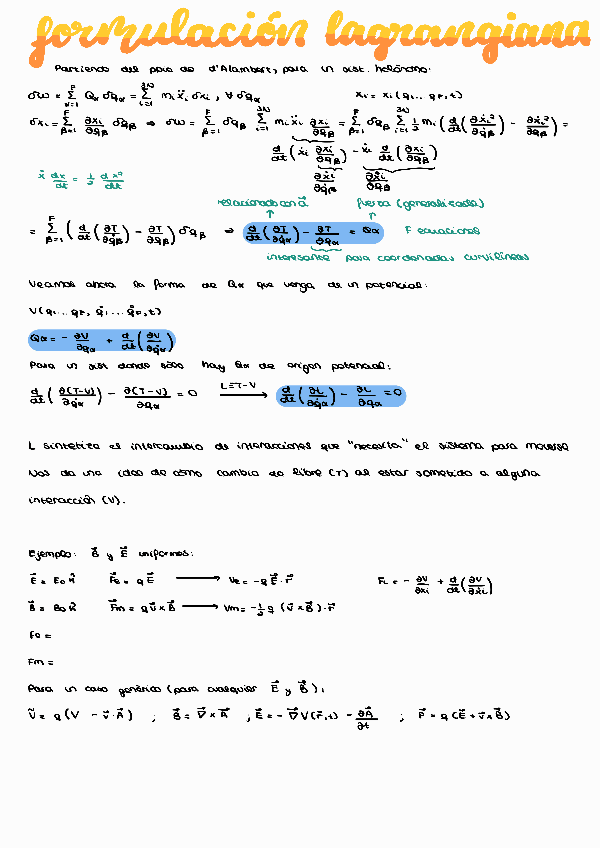 formulación lagrangiana
Partiendo del ppio de d'Alambert, para un sist. holónomo:
δω = Σ_{α=1}^{F} Qα δqα = Σ_{i=1}^{3N} mi ẍi δxi , ∀ δqα        xi = xi (q1... qF, t)
δxi = Σ_{β=1}^{F} ∂xi/∂qβ δqβ ⇒ δω = Σ_{β=1}^{F} δqβ Σ_{i=1}^{3N} mi ẍi ∂xi/∂qβ = Σ_{β=1}^{F} δqβ Σ_{i=1}^{3N} 1/2 mi ( d/dt ( ∂ẋi²/∂q̇β ) - ∂ẋi²/∂qβ ) =
d/dt ( ẋi ∂xi/∂qβ ) - ẋi d/dt ( ∂xi/∂qβ )
∂ẋi/∂q̇β        ∂ẋi/∂qβ
ẋ dẋ/dt = 1/2 dẋ²/dt
relacionado con a⃗        fuerza (generalizada)
= Σ_{β=1}^{F} ( d/dt ( ∂T/∂q̇β ) - ∂T/∂qβ ) δqβ ⇒ d/dt ( ∂T/∂q̇α ) - ∂T/∂qα = Qα        F ecuaciones
interesante para coordenadas curvilíneas
Veamos ahora la forma de Qα que venga de un potencial:
V(q1... qF, q̇1... q̇F, t)
Qα = - ∂V/∂qα + d/dt ( ∂V/∂q̇α )
Para un sist donde sólo hay Qα de origen potencial:
d/dt ( ∂(T-V)/∂q̇α ) - ∂(T-V)/∂qα = 0 —L=T-V→ d/dt ( ∂L/∂q̇α ) - ∂L/∂qα = 0
L sintetiza el intercambio de interacciones que "necesita" el sistema para moverse
Nos da una idea de cómo cambia de libre (T) al estar sometido a alguna
interacción (V).
Ejemplo: B⃗ y E⃗ uniformes:
E⃗ = E0 k̂        F⃗e = q E⃗ → Ve = -q E⃗ · r⃗        Fi = - ∂V/∂xi + d/dt ( ∂V/∂ẋi )
B⃗ = B0 k̂        F⃗m = q v⃗ x B⃗ → Vm = -1/2 q (v⃗ x B⃗) · r⃗
Fe =
Fm =
Para un caso genérico (para cualquier E⃗ y B⃗):
Ṽ = q (V - v⃗ · A⃗) ; B⃗ = ∇⃗ x A⃗ , E⃗ = - ∇⃗ V(r⃗, t) - ∂A⃗/∂t ; F⃗ = q (E⃗ + v⃗ x B⃗)